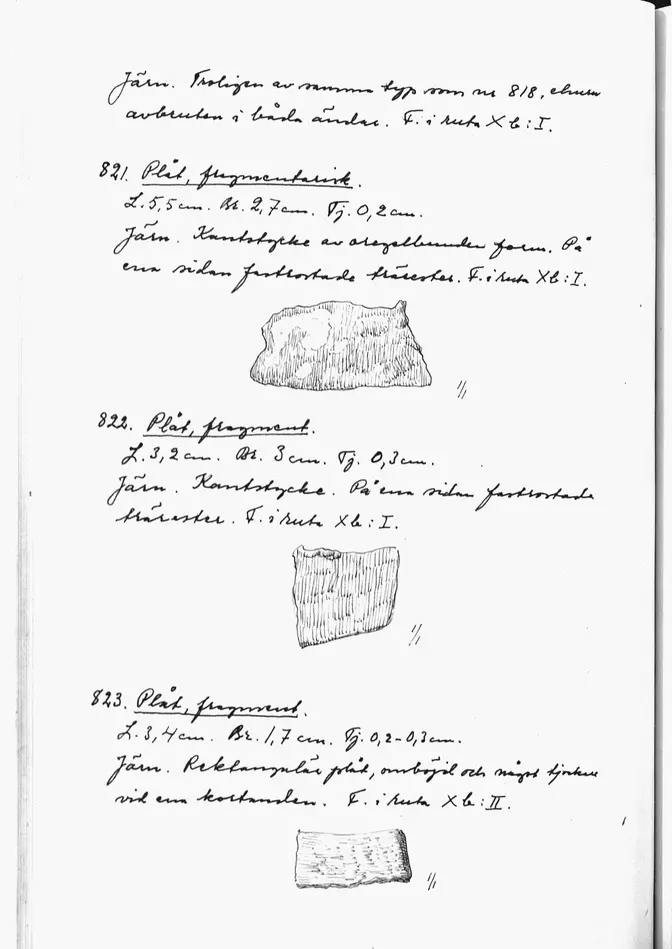 Järn. Troligen av samma typ som nr 818, ehuru
avbruten i båda ändar. F. i ruta Xb:I.
821. Plåt, fragmentarisk.
L. 5,5 cm. Br. 2,7 cm. Tj. 0,2 cm.
Järn. Kantstycke av oregelbunden form. På
ena sidan fastrostade trärester. F. i ruta Xb:I.
1/1
822. Plåt, fragment.
L. 3,2 cm. Br. 3 cm. Tj. 0,3 cm.
Järn. Kantstycke. På ena sidan fastrostade
trärester. F. i ruta Xb:I.
1/1
823. Plåt, fragment.
L. 3,4 cm. Br. 1,7 cm. Tj. 0,2-0,3 cm.
Järn. Rektangulär plåt, ombojd och något tjockare
vid ena kortändan. F. i ruta Xb:II.
1/1